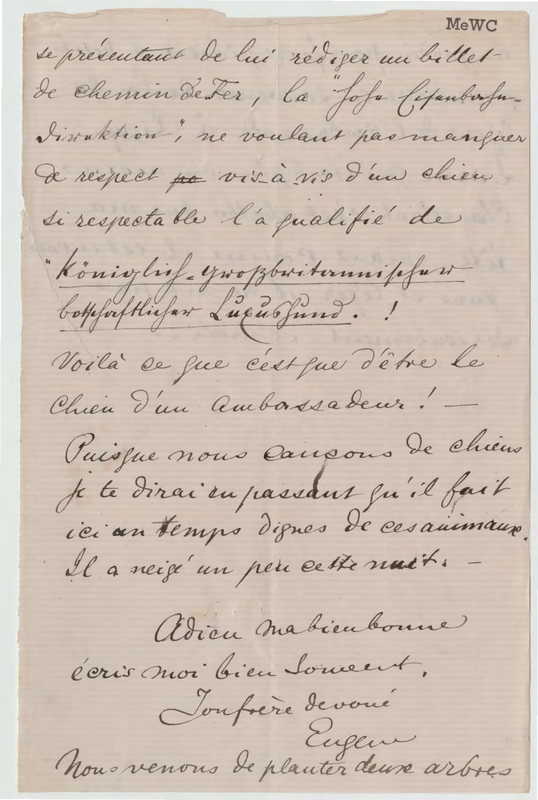 MeWC
se présentant de lui rédiger un billet
de chemin de Fer, la "hohe Eisenbahn-
direktion", ne voulant pas manquer
de respect po vis-à-vis d'un chien
si respectable l'a qualifié de
"Königlich-großbritannischer
botschaftlicher Luxushund. !
Voilà ce que c'est que d'être le
chien d'un Ambassadeur! —
Puisque nous causons de chiens
je te dirai en passant qu'il fait
ici un temps dignes de ces animaux.
Il a neigé un peu cette nuit. —
Adieu ma bien bonne
écris moi bien souvent.
Ton frère devoué
Eugène
Nous venons de planter deux arbres